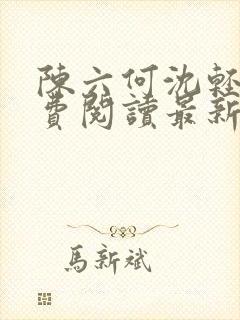 陳六何沈輕
費閱讀最新
馬新斌